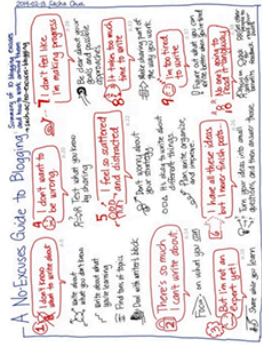 2014-02-13 Sacha Chua
A No-Excuses Guide to Blogging
Summary of 10 blogging excuses
and how to work around them
1 I don't know
what to write about
Write about
what you don't know
Write about what
you're learning
Find tons of topics
Deal with writer's block
2 There's so much
I can't write about
Focus on what you can
3 But I'm not an
expert yet!
Share while you learn
4 I don't want to
be wrong.
Test what you know
by sharing
5 I feel so scattered
and distracted
Don't worry about
your strategy
It's okay to write about
different things.
Plan, write, organize
and improve
6 I have all these ideas
but I never finish posts
Turn your ideas into small
questions, and then answer those
7 I don't feel like
I'm making progress
Be clear about your
goals and possible
approaches
8 It takes too much
time to write
Make sharing part of
the way you work.
9 I'm too tired
to write
Figure out what you can
write better when you're tired
10 No one's going to
read me anyway